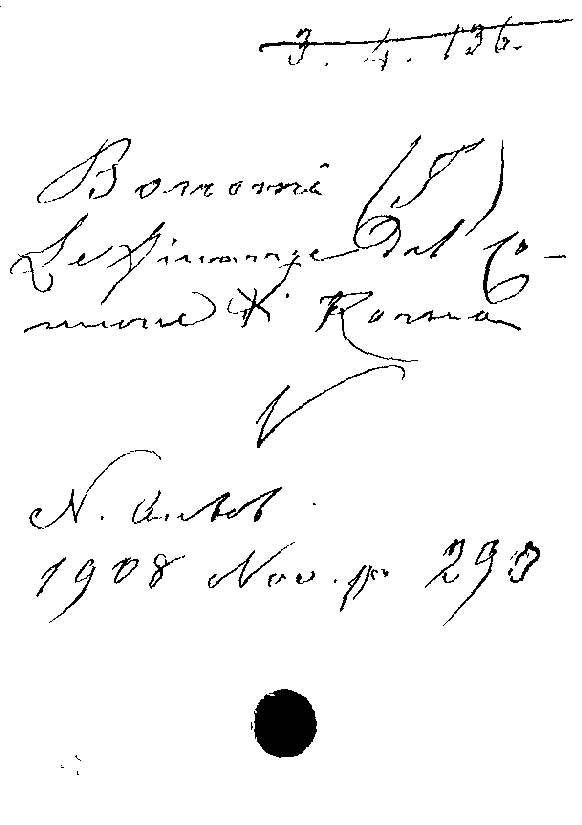 3. 4. 136.
Bonomi (I)
Le finanze del Co-
mune di Roma
N. Antol.
1908 Nov. p. 293